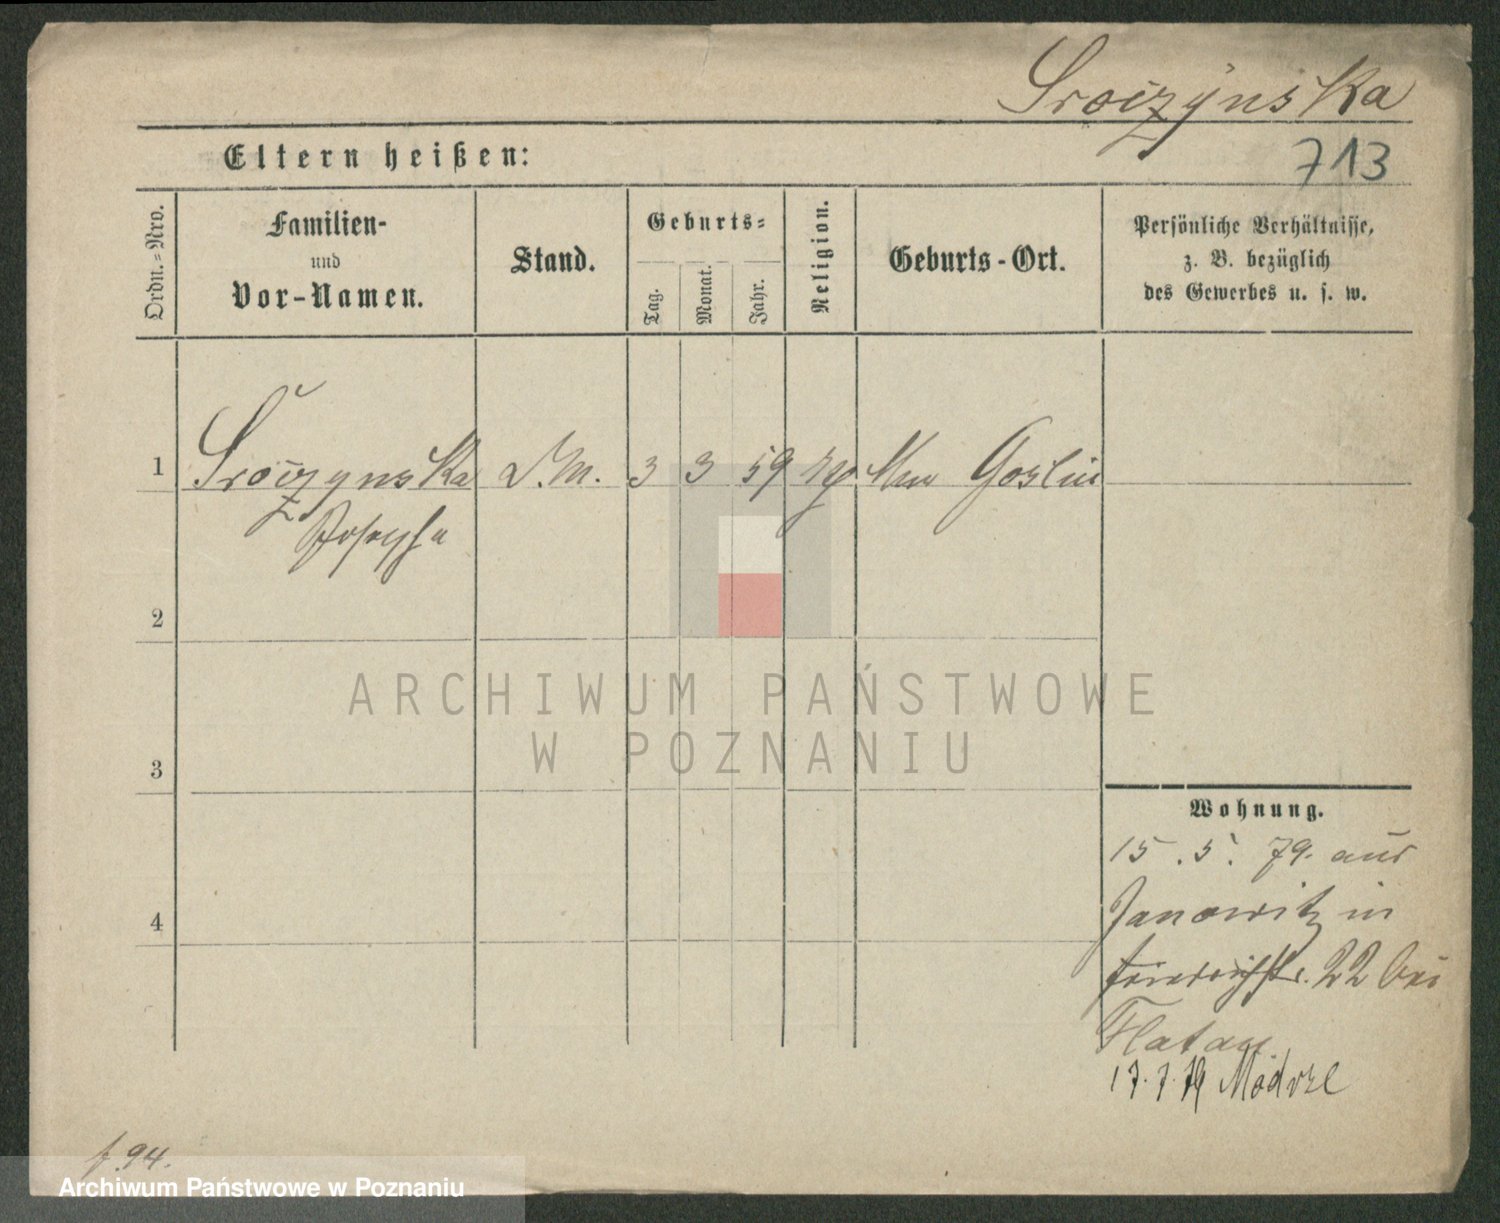 Sroczynska
713
Eltern heißen:
Ordn.-Nro.
Familien-
und
Vor-Namen.
Stand.
Geburts-
Tag.
Monat.
Jahr.
Religion.
Geburts-Ort.
Persönliche Verhältnisse,
z. B. bezüglich
des Gewerbes u. s. w.
1
Sroczynska D.M. 3 3 59 Mur Goslin
Josepha
2
3
4
ARCHIWUM PAŃSTWOWE
W POZNANIU
Wohnung.
15.5.79. aus
Janowitz in
Friedrichstr. 22 bei
Flatau
17.7.79
f. 94.
Archiwum Państwowe w Poznaniu